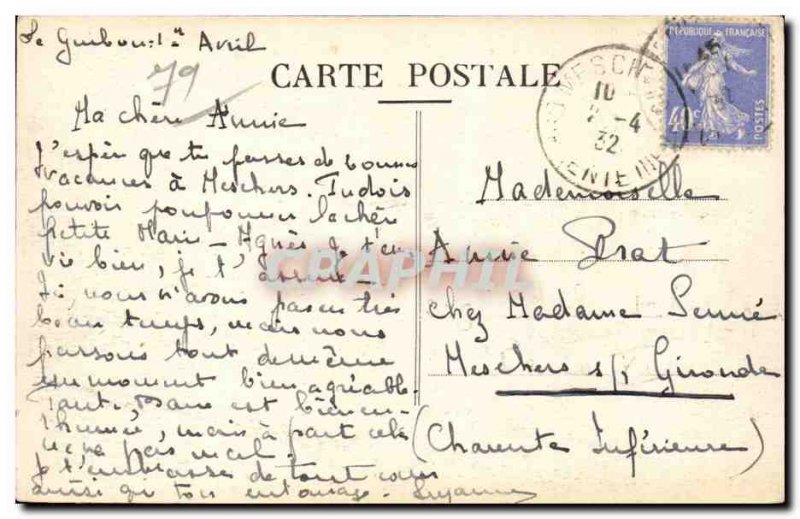 Le Guibou 1er Avril
79
CARTE POSTALE
Ma chère Annie
J'espère que tu passes de bonnes
vacances à Meschers. Tu dois
pouvoir pouponner la chère
petite Marie-Agnès. Je t'en
vie bien, je t'assure.
Ici, nous n'avons pas eu très
beau temps, mais nous
passons tout de même
un moment bien agréable.
est bien en-
rhumée, mais à part cela
ne va pas mal.
Je t'embrasse de tout cœur
ainsi que ton entourage. Suzanne
Mademoiselle
Annie Prat
chez Madame Senné
Meschers s/ Gironde
(Charente Inférieure)
REPUBLIQUE FRANÇAISE
40c
POSTES
MESCH
10
-4
32
CRAPHIL